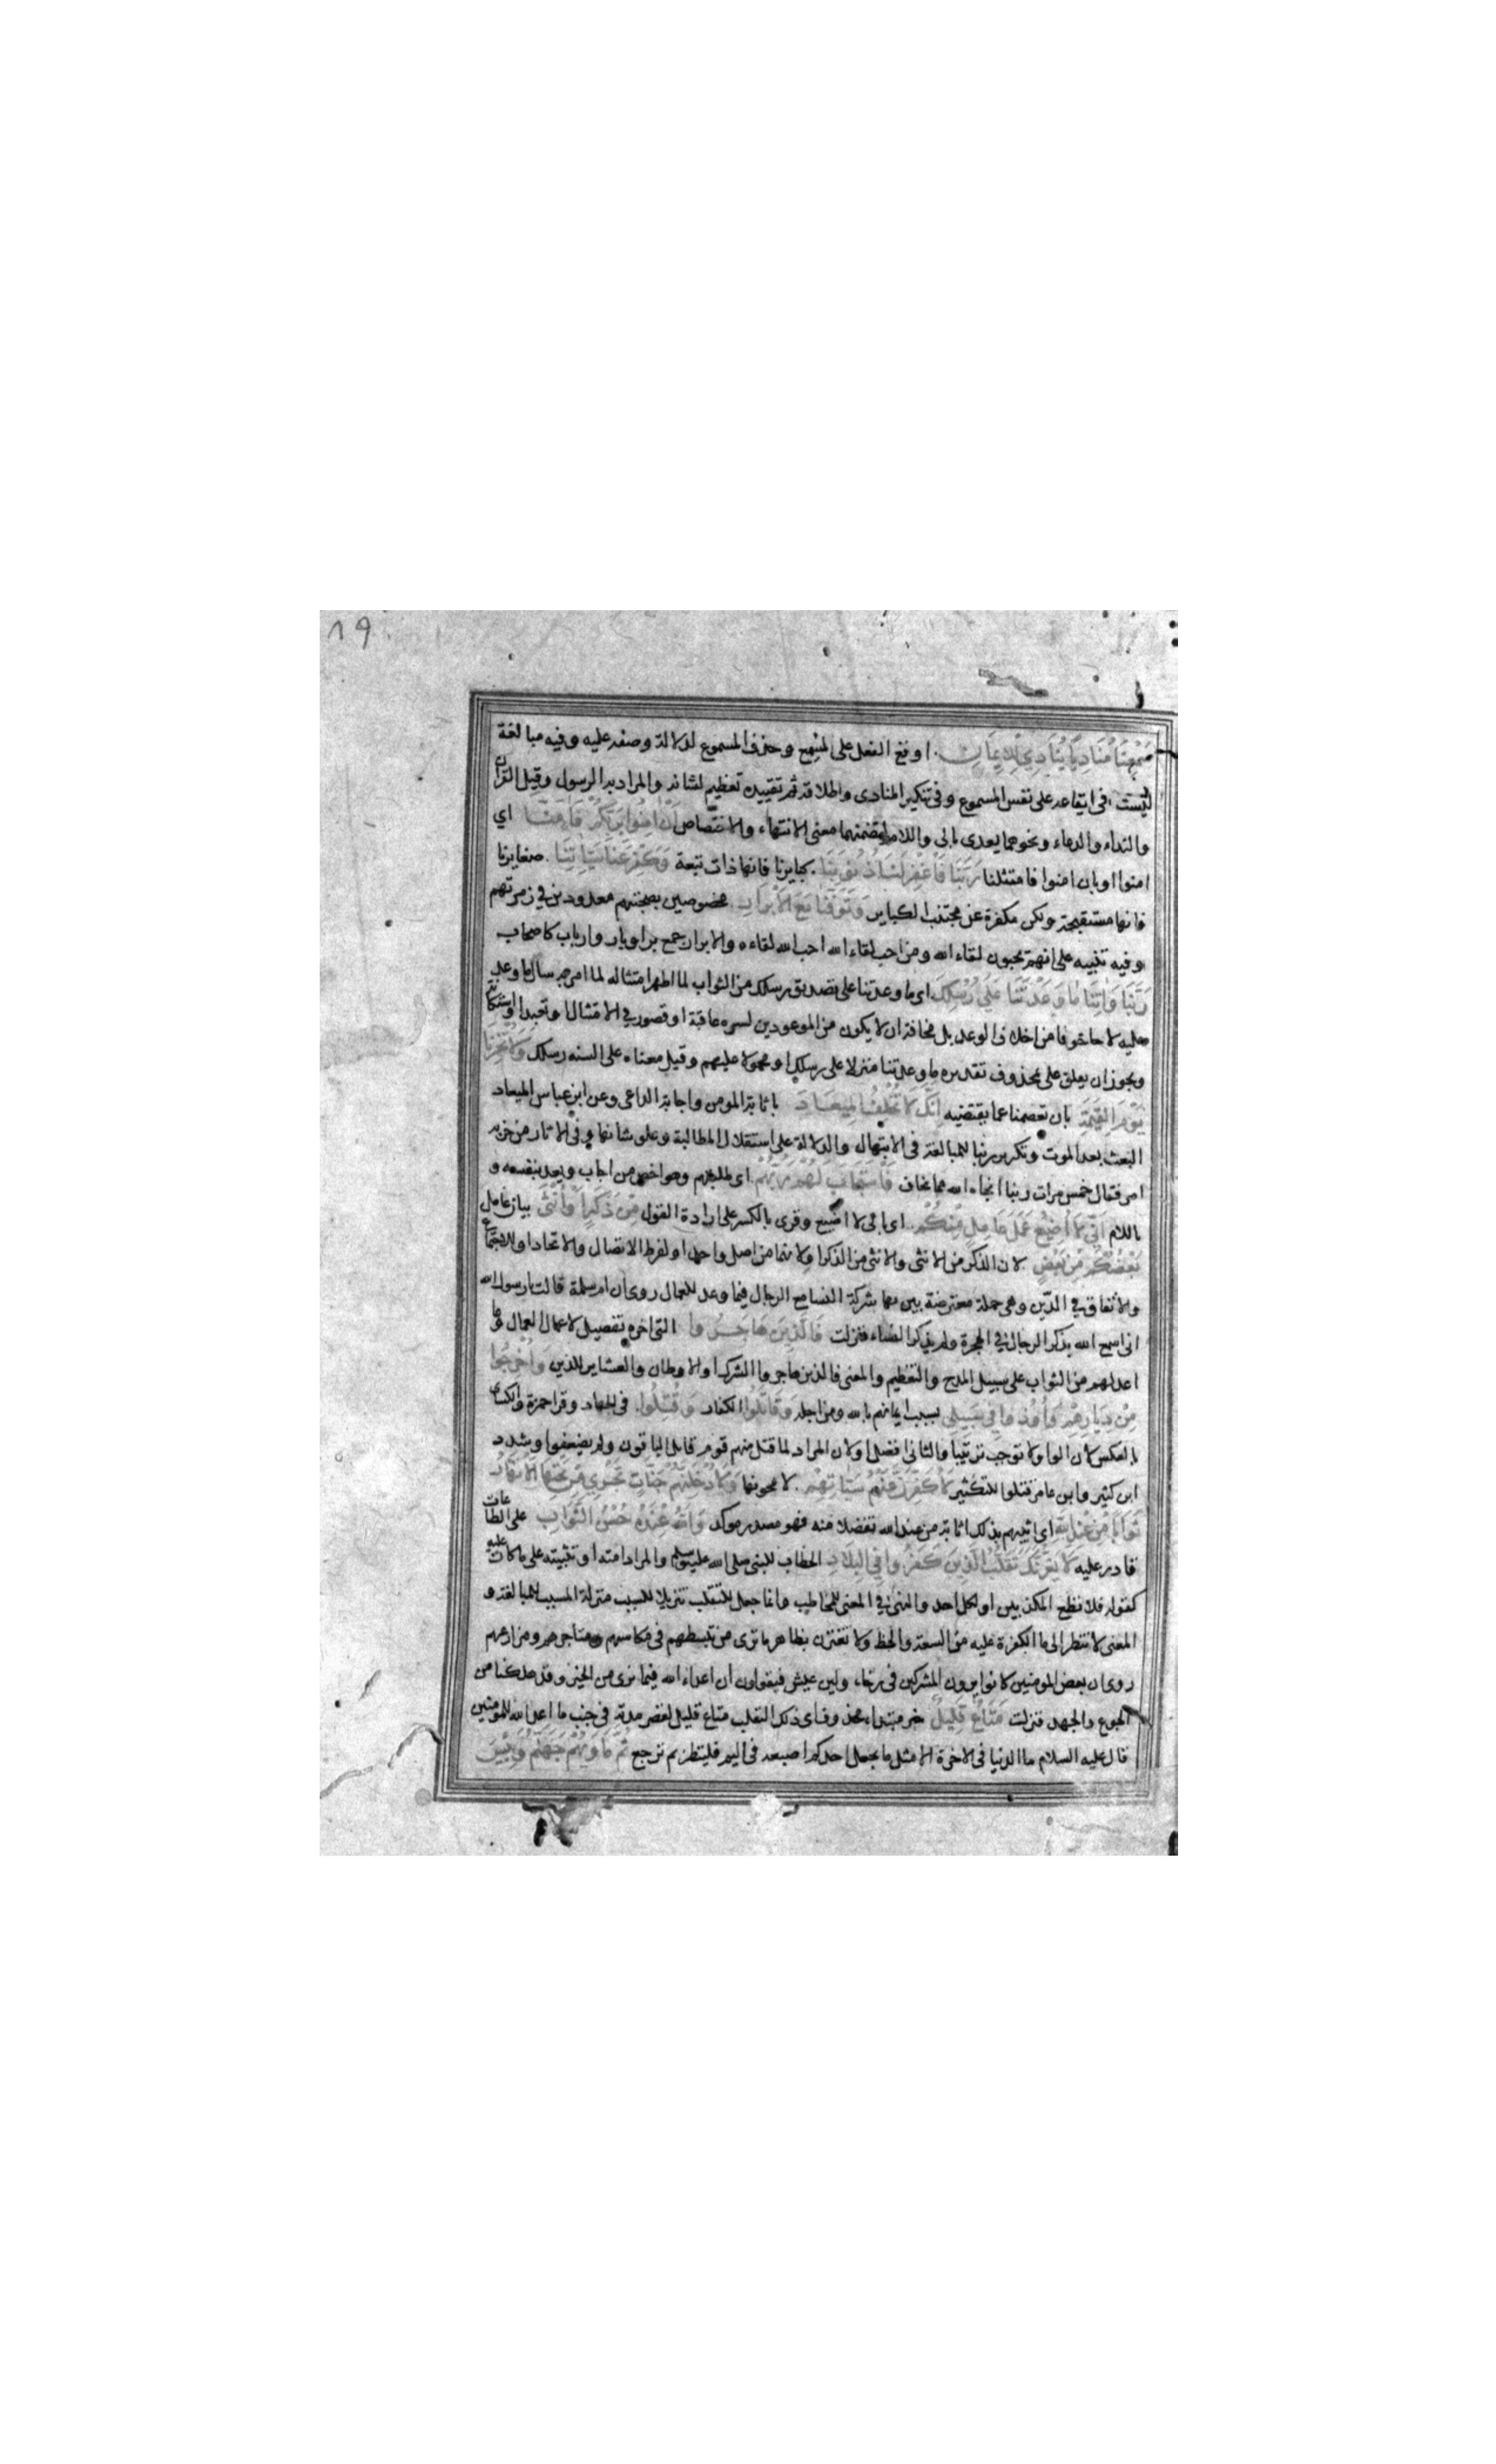 ٨٩
سَمِعْنَا مُنَادِيًا يُنَادِي لِلْاِيمَانِ اوقع الفعل على المسمع وحذف المسموع لدلالة وصفه عليه وفيه مبالغة
ليست فى ايقاعه على نفس المسموع وفى تنكير المنادى واطلاقه ثم تقييده تعظيم لشانه والمراد به الرسول وقيل القران
والنداء والدعاء ونحوهما يعدى بالى واللام لتضمنهما معنى الانتهاء والاختصاص اَنْ اٰمِنُوا بِرَبِّكُمْ فَاٰمَنَّا اي
امنوا او بان امنوا فامتثلنا رَبَّنَا فَاغْفِرْ لَنَا ذُنُوبَنَا كبايرنا فانها ذات تبعة وَكَفِّرْ عَنَّا سَيِّاٰتِنَا صغايرنا
فانها مستقبحة ولكن مكفرة عن مجتنب الكباير وَتَوَفَّنَا مَعَ الْاَبْرَارِ مخصوصين بصحبتهم معدودين في زمرتهم
وفيه تنبيه على انهم يحبون لقاء الله ومن احب لقاء الله احب الله لقاءه والابرار جمع بر او بار وارباب كاصحاب
رَبَّنَا وَاٰتِنَا مَا وَعَدْتَنَا عَلَى رُسُلِكَ اى ما وعدتنا على تصديق رسلك من الثواب لما اظهر امتثاله لما امر به سال ما وعد
عليه لا خوفا من اخلاف الوعد بل مخافة ان لا يكون من الموعودين لسوء عاقبة او قصور في الامتثال او تعبدا واستكانة
ويجوز ان يعلق على محذوف تقديره ما وعدتنا منزلا على رسلك او محمولا عليهم وقيل معناه على السنة رسلك وَلَا تُخْزِنَا
يَوْمَ الْقِيٰمَةِ بان تعصمنا عما يقتضيه اِنَّكَ لَا تُخْلِفُ الْمِيعَادَ باثابة المومن واجابة الداعى وعن ابن عباس الميعاد
البعث بعد الموت وتكرير ربنا للمبالغة فى الابتهال والدلالة على استقلال المطالبة وعلو شانها وفى الاثار من حزبه
امر فقال خمس مرات ربنا انجاه الله مما يخاف فَاسْتَجَابَ لَهُمْ رَبُّهُمْ اى طلبتهم وهو اخص من اجاب ويعدى بنفسه و
باللام اَنِّي لَا اُضِيعُ عَمَلَ عَامِلٍ مِنْكُمْ اى بانى لا اضيع وقرى بالكسر على ارادة القول مِنْ ذَكَرٍ اَوْ اُنْثَى بيان عامل
بَعْضُكُمْ مِنْ بَعْضٍ لان الذكر من الانثى والانثى من الذكر او لانهما من اصل واحد او لفرط الاتصال والاتحاد او للاجتماع
والاتفاق في الدين وهى جملة معترضة بين بها شركة النسا مع الرجال فيما وعد للعمال روى ان ام سلمة قالت يارسول الله
انى اسمع الله يذكر الرجال في الهجرة ولم يذكر النساء فنزلت فَالَّذِينَ هَاجَرُوا الى اخره تفصيل لاعمال العمال وما
اعد لهم من الثواب على سبيل المدح والتعظيم والمعنى فالذين هاجروا الشرك او الاوطان والعشاير للدين وَاُخْرِجُوا
مِنْ دِيَارِهِمْ وَاُوذُوا فِي سَبِيلِي بسبب ايمانهم بالله ومن اجله وَقَاتَلُوا الكفار وَقُتِلُوا فى الجهاد وقرا حمزة والكساى
بالعكس لان الواو لا توجب ترتيبا والثانى افضل او لان المراد لما قتل منهم قوم قاتل الباقون ولم يضعفوا وشدد
ابن كثير وابن عامر قتلوا للتكثير لَاُكَفِّرَنَّ عَنْهُمْ سَيِّاٰتِهِمْ لامحونها وَلَاُدْخِلَنَّهُمْ جَنَّاتٍ تَجْرِي مِنْ تَحْتِهَا الْاَنْهَارُ
ثَوَابًا مِنْ عِنْدِ اللهِ اى اثيبهم بذلك اثابة من عند الله تفضلا منه فهو مصدر موكد وَاللهُ عِنْدَهُ حُسْنُ الثَّوَابِ على الطاعات
قادر عليه لَا يَغُرَّنَّكَ تَقَلُّبُ الَّذِينَ كَفَرُوا فِي الْبِلَادِ الخطاب للنبى صلى الله عليه وسلم والمراد امته او تثبيته على ما كان عليه
كقوله فلا تطع المكذبين او لكل احد والنهى في المعنى للمخاطب وانما جعل للتقلب تنزيلا للسبب منزلة المسبب للمبالغة و
المعنى لا تنظر الى ما الكفرة عليه من السعة والحظ ولا تغترن بظاهر ما ترى من تبسطهم فى مكاسبهم ومتاجرهم ومزارعهم
روى ان بعض المومنين كانوا يرون المشركين فى رخاء ولين عيش فيقولون ان اعداء الله فيما نرى من الخير وقد هلكنا من
الجوع والجهد فنزلت مَتَاعٌ قَلِيلٌ خبر مبتداء محذوف اى ذلك التقلب متاع قليل لقصر مدته فى جنب ما اعد الله للمومنين
قال عليه السلام ما الدنيا فى الاخرة الا مثل ما يجعل احدكم اصبعه فى اليم فلينظر بم ترجع ثُمَّ مَاْوٰيهُمْ جَهَنَّمُ وَبِئْسَ